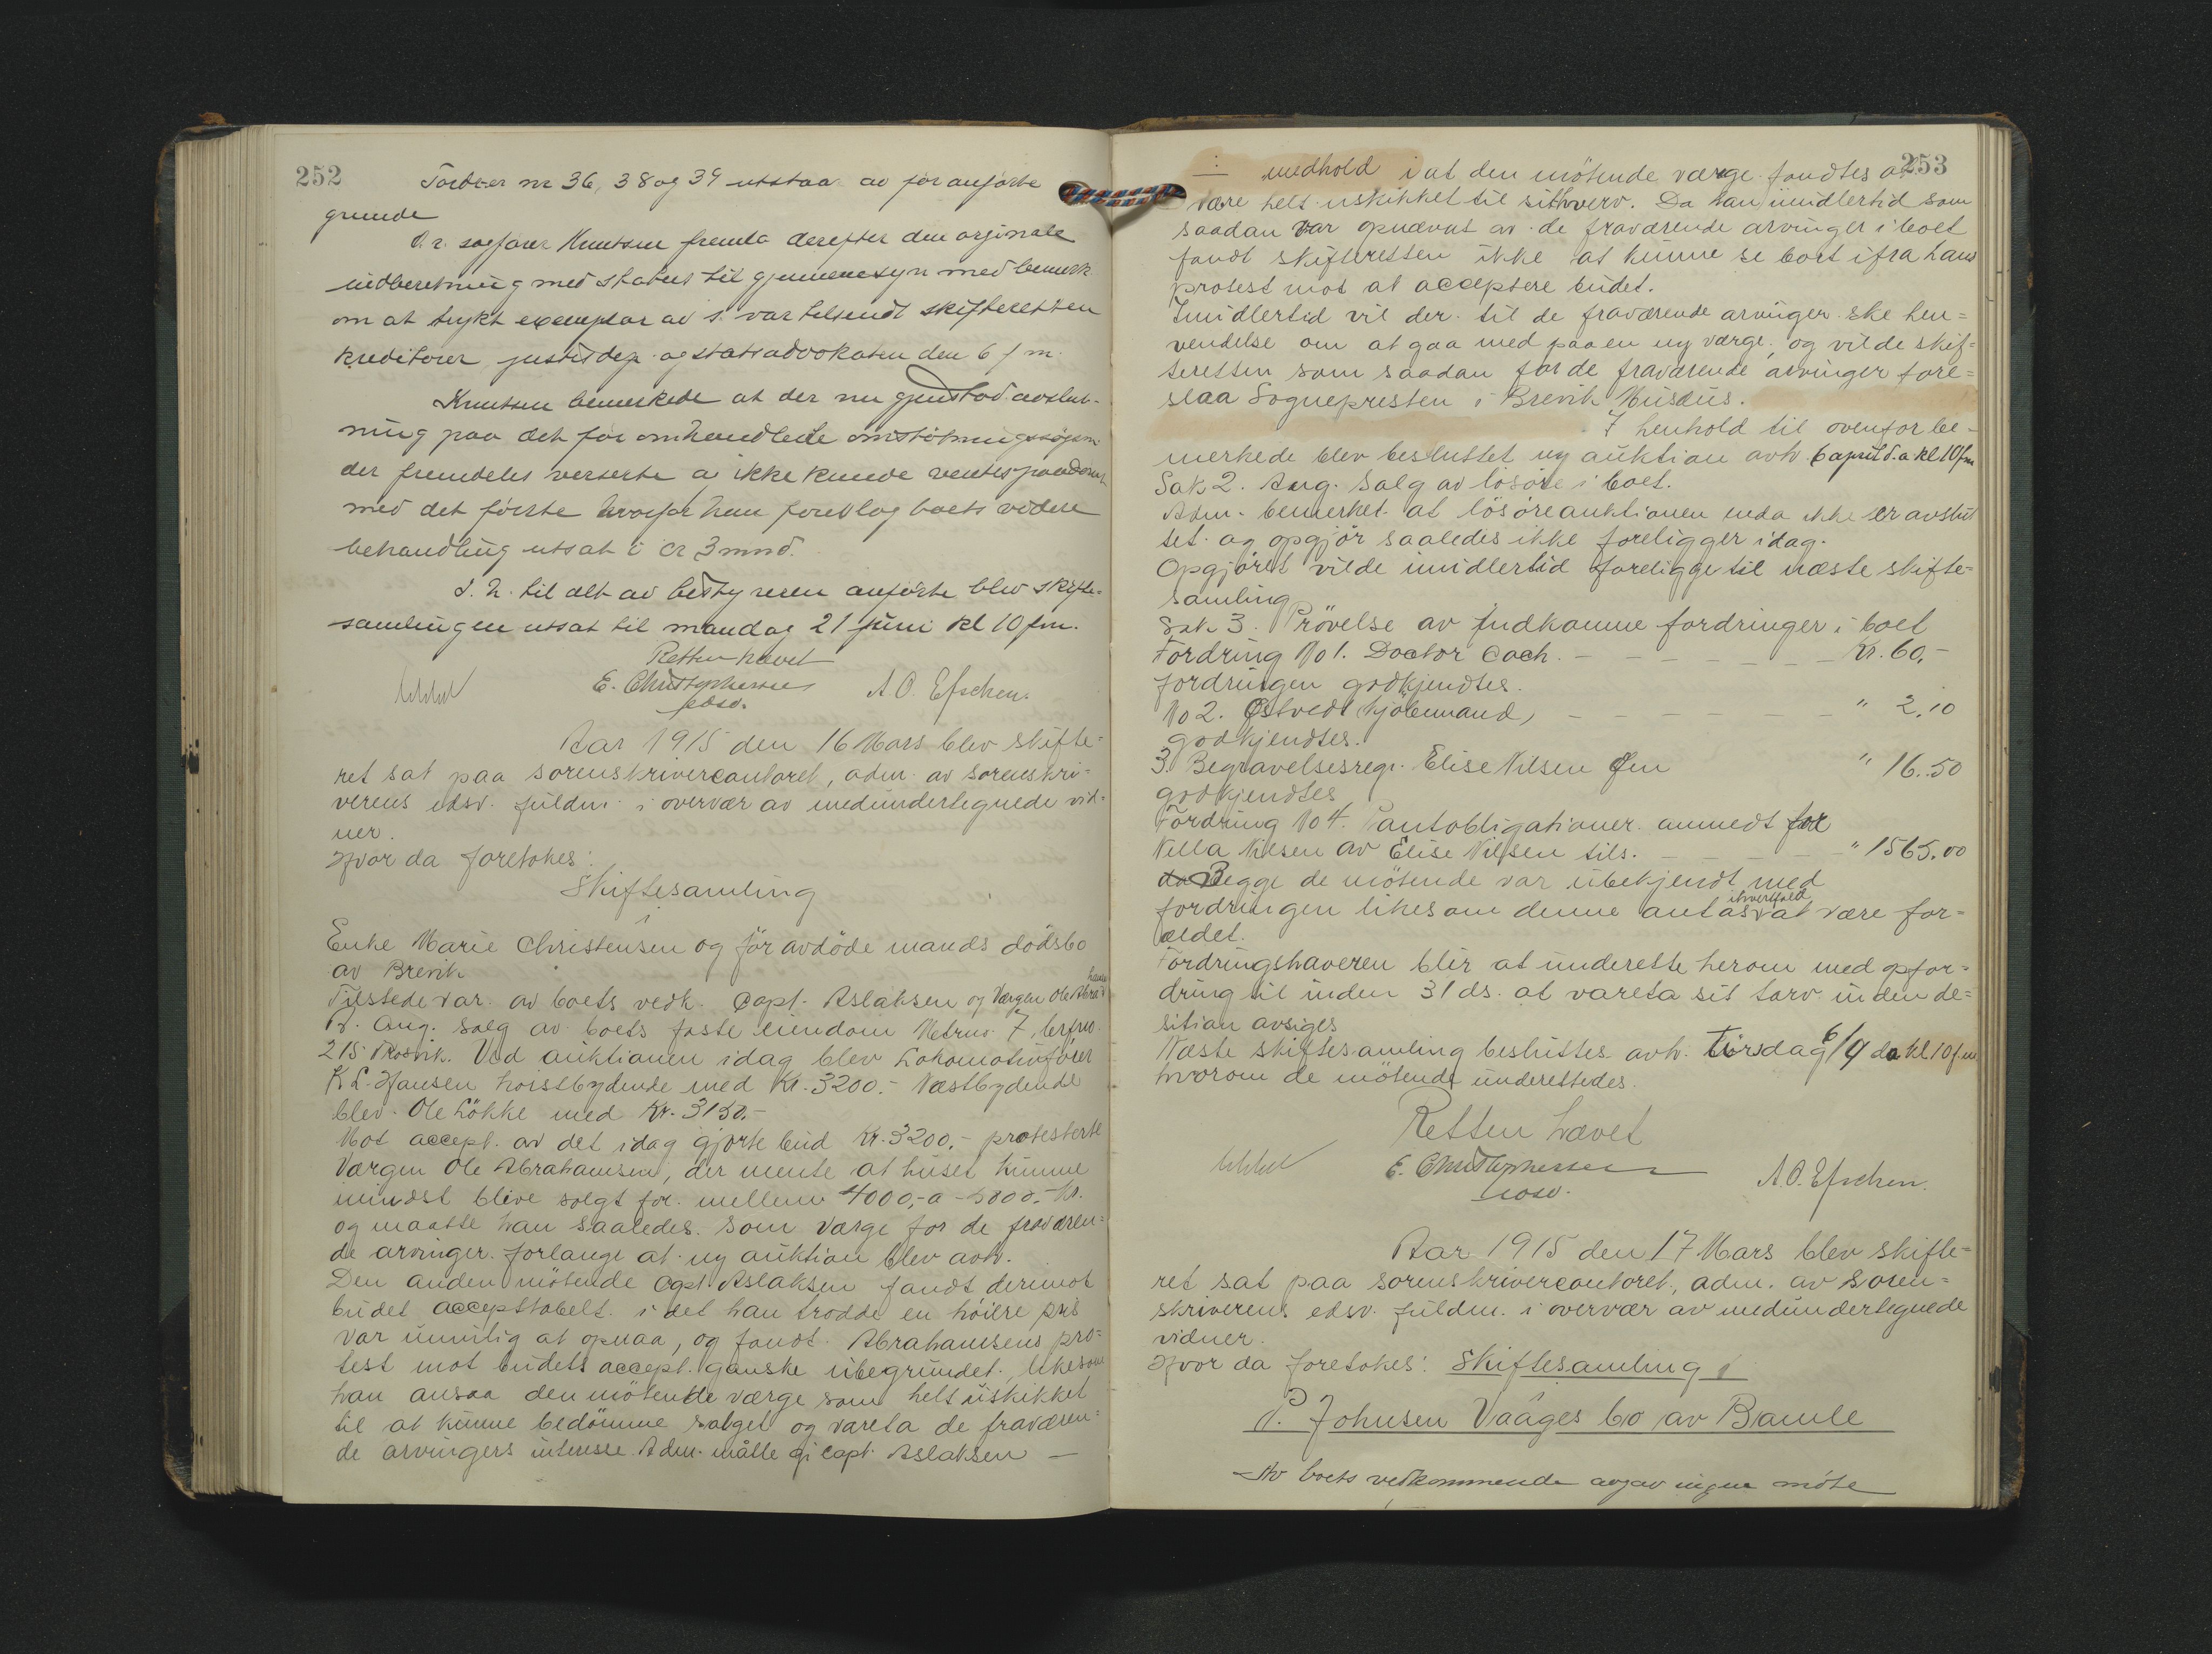 252
Fordrer nr 36, 38 og 39 utstaa av før anførte
grunde
O.r. sagfører Knutsen fremla derefter den orginale
indberetning med status til gjennemsyn med bemerk
om at trykt exemplar av s. var tilsendt skifteretten
kreditorer justisdep. og statsadvokaten den 6 f m.
Knutsen bemerkede at der nu gjenstod avslut-
ning paa det før omhandlede omstøtningssøgsm
der fremdeles verserte og ikke kunde ventes paadømt
med det første hvorfor han foreslog boets videre
behandling utsat i ca 3 mnd.
I. h. til alt av bestyreren anførte blev skifte-
samlingen utsat til mandag 21 juni kl 10 fm.
Retten hævet
E. Christophersen A. O. Efschen.
edsv.
Aar 1915 den 16 Mars blev skifte-
ret sat paa sorenskrivercontoret, adm. av sorenskri-
verens edsv. fuldm. i overvær av medundertegnede vid-
ner.
Hvor da foretokes:
Skiftesamling
i
Enke Marie Christensen og før avdøde mands dødsbo
av Brevik
Tilstede var av boets vedk. Capt. Aslaksen og Værgen Ole Abra-
hamsen
1. Ang. salg av boets faste eiendom Metrno 7, brfno
215 Trosvik. Ved auktionen idag blev Lokomotivfører
K L. Hansen høistbydende med Kr. 3200.- Næstbydende
blev Ole Løkke med Kr. 3150.-
Mot accept. av det idag gjorte bud Kr. 3200.- protesterte
Værgen Ole Abrahamsen, der mente at huset kunne
mindst blive solgt for mellem 4000,- a -5000.- kr.
og maatte han saaledes som værge for de fraværen-
de arvinger forlange at ny auktion blev avh.
Den anden møtende Capt. Aslaksen fandt derimot
budet acceptabelt i det han trodde en høiere pris
var umulig at opnaa, og fandt Abrahamsens pro-
test mot budets accept. ganske ubegrundet, likesom
han ansaa den møtende værge som helt uskikket
til at kunne bedømme salget og vareta de fraværen-
de arvingers interesse. Adm. måtte gi capt Aslaksen —
253
— medhold i at den møtende værge fandtes at
være helt uskikket til sit hverv. Da han imidlertid som
saadan var opnævnt av de fraværende arvinger i boet
fandt skifteretten ikke at kunne se bort ifra hans
protest mot at acceptere budet.
Imidlertid vil der til de fraværende arvinger ske hen-
vendelse om at gaa med paa en ny værge, og vilde skif-
teretten som saadan for de fraværende arvinger fore-
slaa Sognepresten i Brevik Musæus.
I henhold til ovenfor be-
merkede blev besluttet ny auktion avh. 6 april d.a. kl 10 fm
Sak 2. Ang. Salg av løsøre i boet.
Adm. bemerket at løsøreauktionen enda ikke er avslut
tet og opgjør saaledes ikke foreligger idag.
Opgjøret vilde imidlertid foreligge til næste skifte-
samling
Sak 3. Prøvelse av Indkomne fordringer i boet
Fordring No 1. Doctor Coch. — — — Kr. 60,-
fordringen godkjendtes.
No 2. Østvedt kjøbmand, — — — " 2.10
godkjendtes.
3. Begravelsesregn. Elise Nilsen Øen " 16.50
godkjendtes
Fordring No 4. Pantobligationer anmedt for
Nella Nilsen av Elise Nilsen tils. — — — " 1565.00
da Begge de møtende var ubekjendt med
fordringen likesom denne antas ihvertfald at være for-
ældet.
Fordringshaveren blir at underette herom med opfor-
dring til inden 31 ds. at vareta sit tarv inden de-
sition avsiges
Næste skiftesamling besluttes avh. Tirsdag 6/4 da kl 10 fm
hvorom de møtende underettedes.
Retten hævet
E. Christophersen A. O. Efschen.
edsv.
Aar 1915 den 17 Mars blev skifte-
ret sat paa sorenskrivercontoret, adm. av soren-
skriverens edsv. fuldm. i overvær av medundertegnede
vidner.
Hvor da foretokes: Skiftesamling i
P. Johnsen Vaâges bo av Bamle
Av boets vedkommende avgav ingen møte